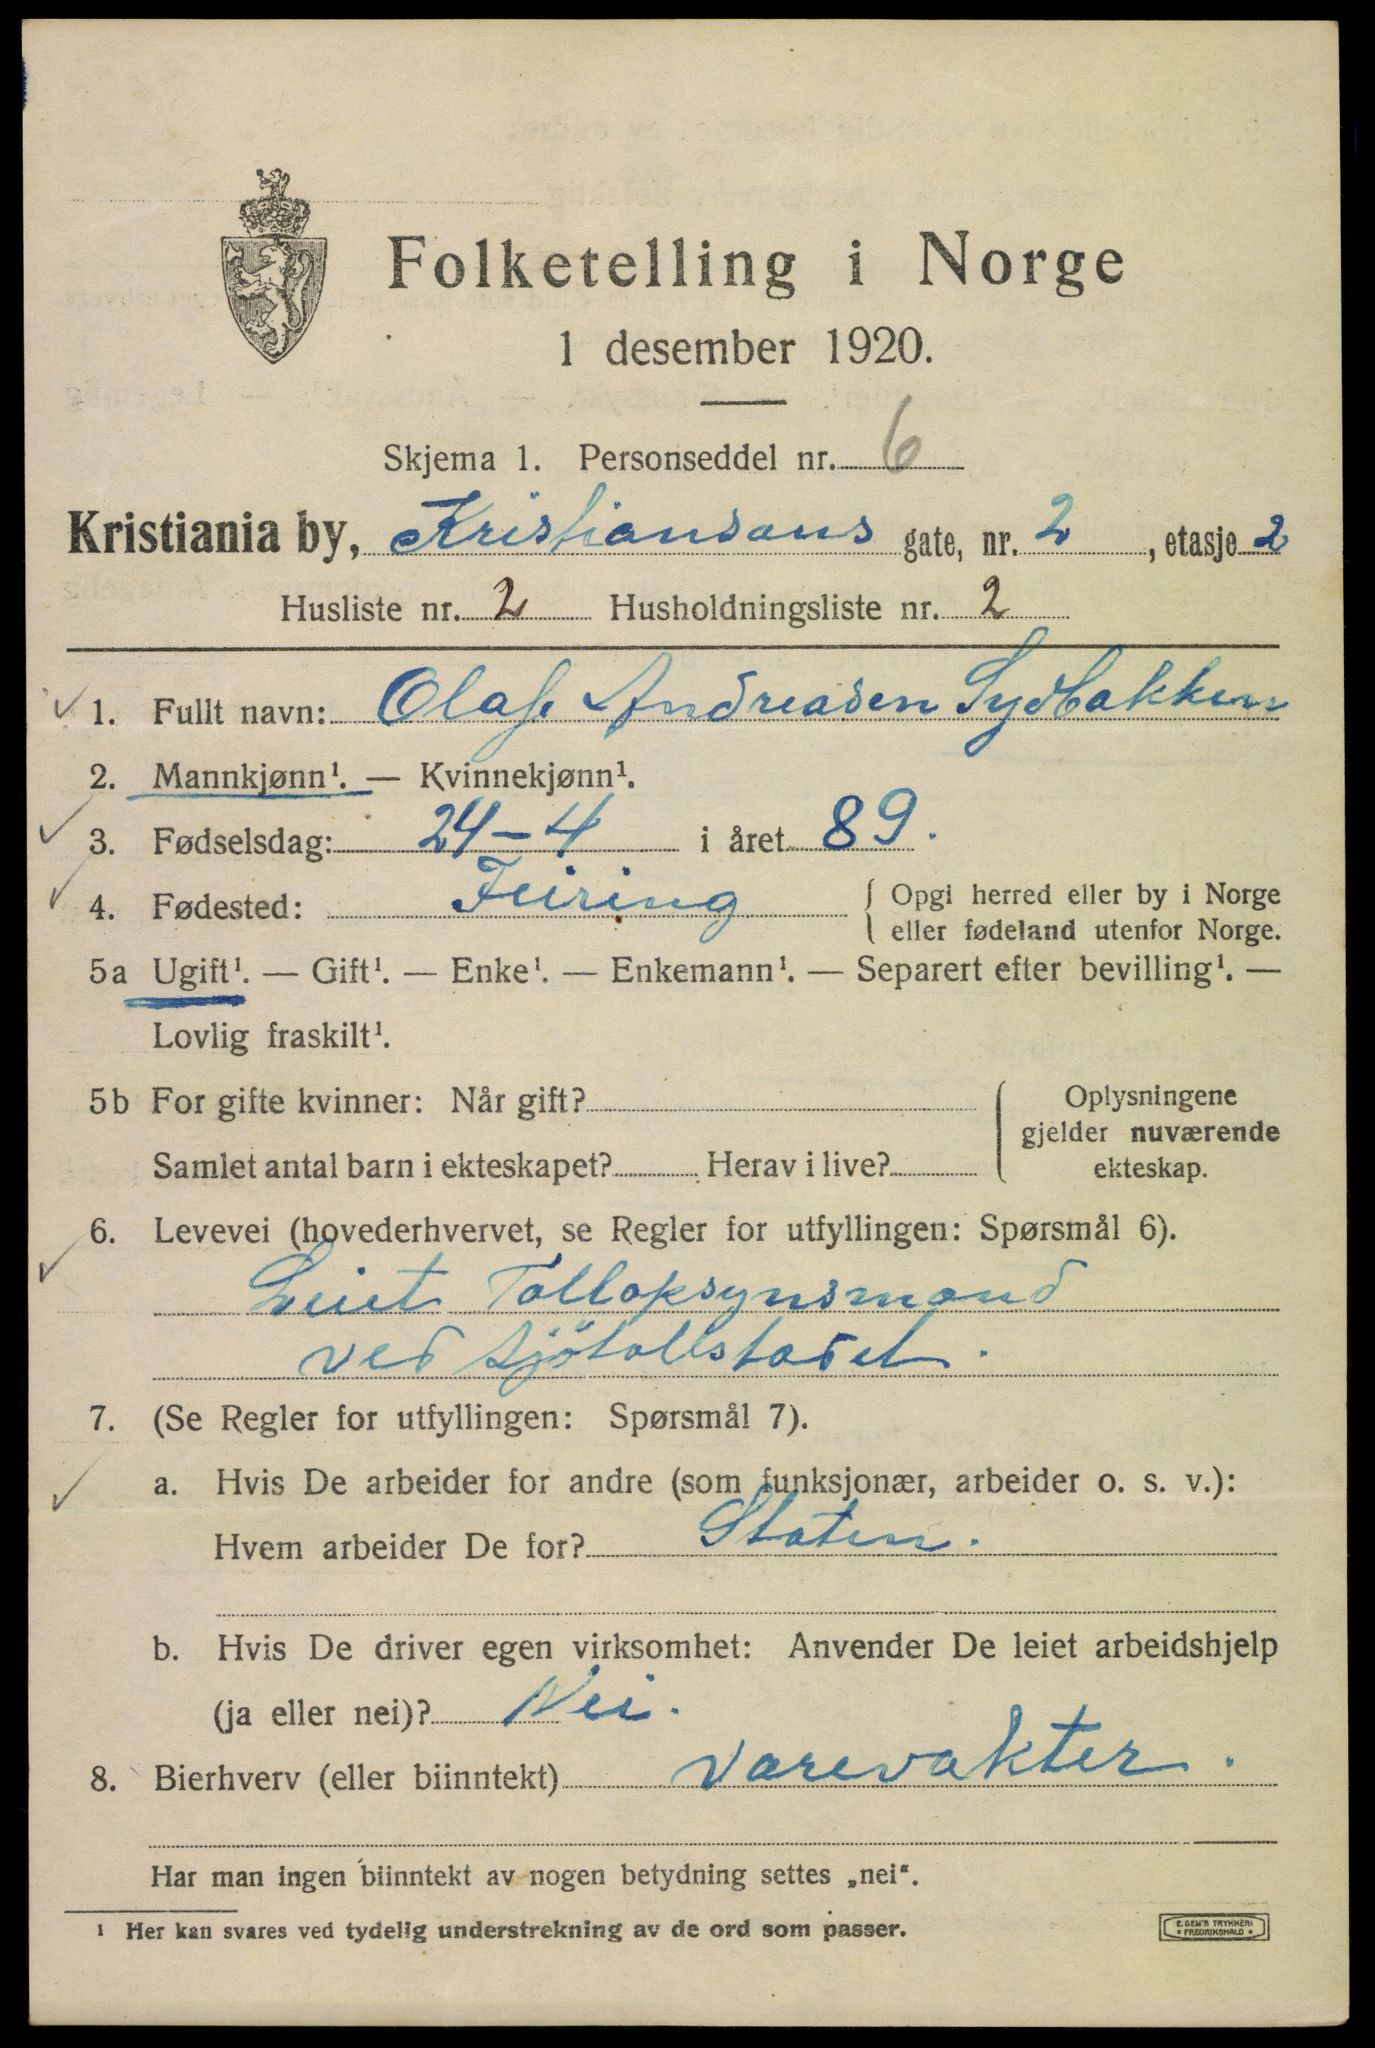 Folketelling i Norge
1 desember 1920.
Skjema 1. Personseddel nr. 6
Kristiania by, Kristiansans gate, nr. 2, etasje 2
Husliste nr. 2 Husholdningsliste nr. 2
1. Fullt navn: Olaf Andreasen Sydbakken
2. Mannkjønn¹. — Kvinnekjønn¹.
3. Fødselsdag: 24-4 i året 89.
4. Fødested: Feiring { Opgi herred eller by i Norge
eller fødeland utenfor Norge.
5a Ugift¹. — Gift¹. — Enke¹. — Enkemann¹. — Separert efter bevilling¹. —
Lovlig fraskilt¹.
5b For gifte kvinner: Når gift?
Samlet antal barn i ekteskapet? Herav i live?
Oplysningene
gjelder nuværende
ekteskap.
6. Levevei (hovederhvervet, se Regler for utfyllingen: Spørsmål 6).
Leiet Tollopsynsmand
ved Sjötollstadet.
7. (Se Regler for utfyllingen: Spørsmål 7).
a. Hvis De arbeider for andre (som funksjonær, arbeider o. s. v.):
Hvem arbeider De for? Staten.
b. Hvis De driver egen virksomhet: Anvender De leiet arbeidshjelp
(ja eller nei)? Nei.
8. Bierhverv (eller biinntekt) varevakter.
Har man ingen biinntekt av nogen betydning settes „nei“.
¹ Her kan svares ved tydelig understrekning av de ord som passer.
E. SEM'S TRYKKERI
* FREDRIKSHALD *